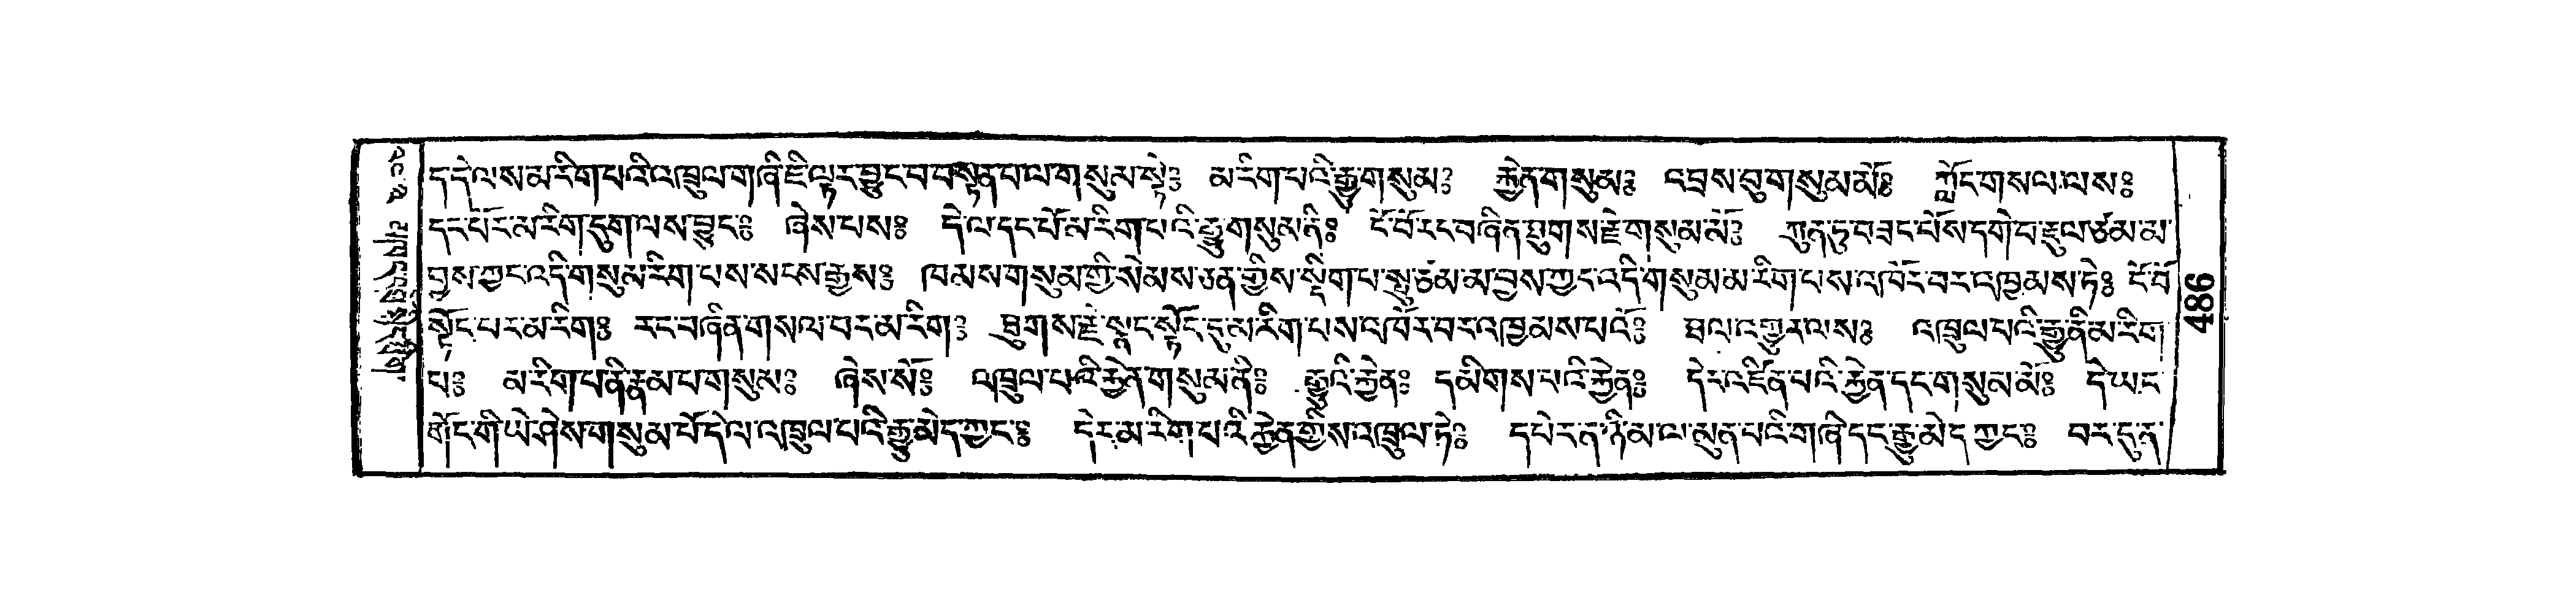 ད་དེ་ལས་མ་རིག་པའི་འཁྲུལ་གཞི་ཇི་ལྟར་བྱུང་བ་བསྟན་པ་ལ་གསུམ་སྟེ༔ མ་རིག་པའི་རྒྱུ་གསུམ༔ རྐྱེན་གསུམ༔ འབྲས་བུ་གསུམ་མོ༔ ཀློང་གསལ་ལས༔
དང་པོར་མ་རིག་དྲུག་ལས་བྱུང༔ ཞེས་པས༔ དེ་ལ་དང་པོ་མ་རིག་པའི་རྒྱུ་གསུམ་ནི༔ ངོ་བོ་རང་བཞིན་ཐུགས་རྗེ་གསུམ་མོ༔ ཀུན་ཏུ་བཟང་པོས་དགེ་བ་རྡུལ་ཙམ་མ་
བྱས་ཀྱང་འདི་གསུམ་རིག་པས་སངས་རྒྱས༔ ཁམས་གསུམ་གྱི་སེམས་ཅན་གྱིས་སྡིག་པ་སྤུ་ཙམ་མ་བྱས་ཀྱང་འདི་གསུམ་མ་རིག་པས་འཁོར་བར་འཁྱམས་ཏེ༔ ངོ་བོ་
སྟོང་པར་མ་རིག༔ རང་བཞིན་གསལ་བར་མ་རིག༔ ཐུགས་རྗེ་སྣང་སྟོང་དུ་མ་རིག་པས་འཁོར་བར་འཁྱམས་པའོ༔ ཐལ་འགྱུར་ལས༔ འཁྲུལ་པའི་རྒྱུ་ནི་མ་རིག་
པ༔ མ་རིག་པ་ནི་རྣམ་པ་གསུམ༔ ཞེས་སོ༔ འཁྲུལ་པའི་རྐྱེན་གསུམ་ནི༔ རྒྱུའི་རྐྱེན༔ དམིགས་པའི་རྐྱེན༔ དེར་འཛིན་པའི་རྐྱེན་དང་གསུམ་མོ༔ དེ་ཡང་
གོང་གི་ཡེ་ཤེས་གསུམ་པོ་དེ་ལ་འཁྲུལ་པའི་རྒྱུ་མེད་ཀྱང༔ དེར་མ་རིག་པའི་རྐྱེན་གྱིས་འཁྲུལ་ཏེ༔ དཔེར་ན་ཉི་མ་ལ་མུན་པའི་གཞི་དང་རྒྱུ་མེད་ཀྱང༔ བར་དུ་ན་
486